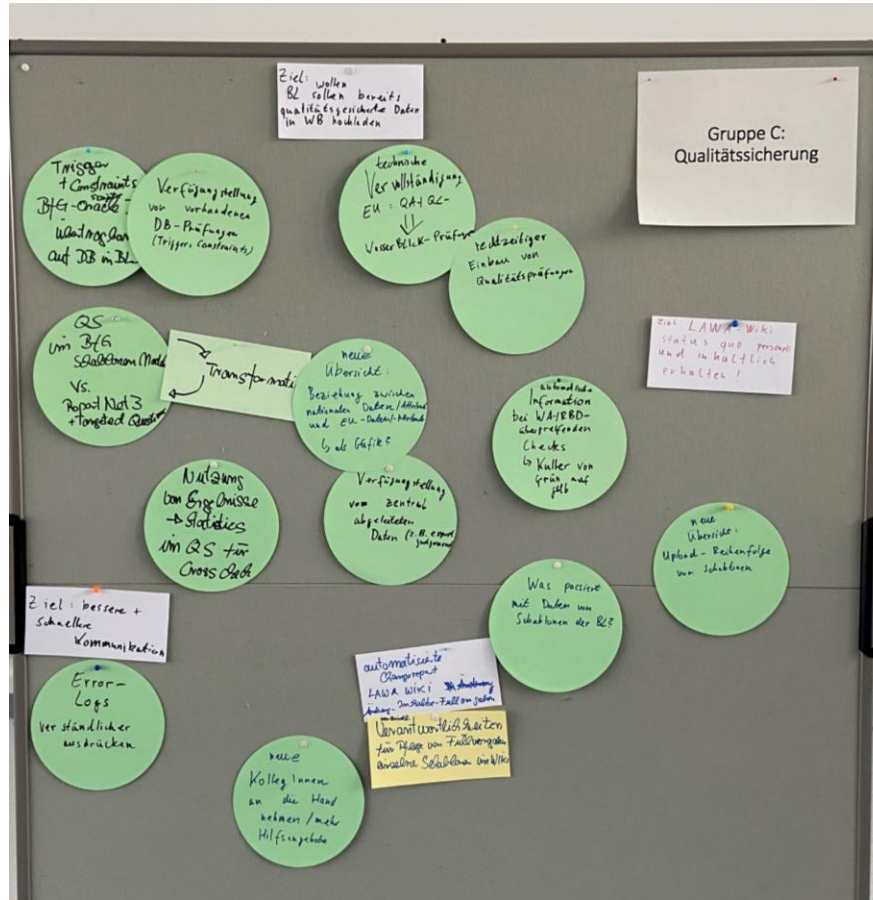 Ziel: wollen
BL sollen bereits
qualitätsgesicherte Daten
in WB hochladen
Gruppe C:
Qualitätssicherung
Trigger
+ Constraints
BfG-Oracle-
übertragbar
auf DB in BL
Verfügungstellung
von vorhandenen
DB-Prüfungen
(Trigger, Constraints)
technische
Vervollständigung
EU: QA/QC-
⇓
WasserBLIcK-Prüfungen
rechtzeitiger
Einbau von
Qualitätsprüfungen
Ziel LAWA-Wiki
status quo personell
und inhaltlich
erhalten!
QS
im BfG
Schablonen
vs.
Report Net 3
+ Targeted Question
Transformati
neue
Übersicht:
Beziehung zwischen
nationalen Daten/Attribute
und EU-Daten/-Attribute
↳ als Grafik?
automatische
Information
bei WA/RBD-
übergreifenden
Checks
↳ Kuller von
Grün auf
gelb
Nutzung
von Ergebnisse
→ Statistics
im QS für
Crosscheck
Verfügungstellung
von zentral
abgeleiteten
Daten (z.B. expert
judgement
neue
Übersicht:
Upload-Reihenfolge
von Schablonen
Was passiert
mit Daten von
Schablonen der BL?
Ziel: bessere +
schnellere
Kommunikation
Error-
Logs
verständlicher
ausdrücken
automatisierte
Changereport
LAWA WIKI
Verantwortlichkeiten
für Pflege von Füllvorgaben
einzelne Schablonen im Wiki
neue
KollegInnen
an die Hand
nehmen / mehr
Hilfsangebote